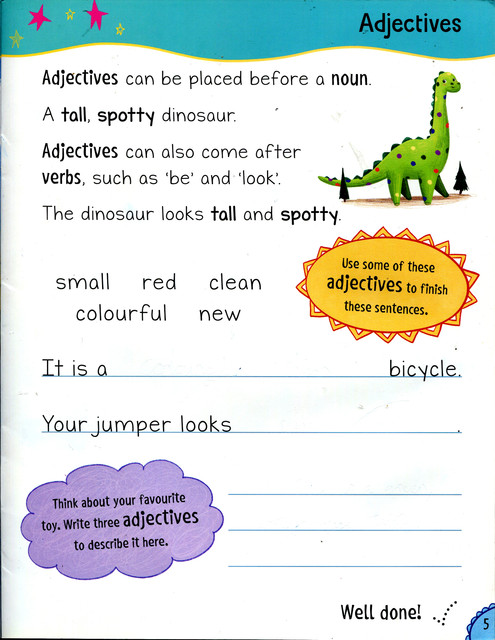 Adjectives
Adjectives can be placed before a noun.
A tall, spotty dinosaur.
Adjectives can also come after
verbs, such as ‘be’ and ‘look’.
The dinosaur looks tall and spotty.
small red clean
colourful new
Use some of these
adjectives to finish
these sentences.
It is a bicycle.
Your jumper looks .
Think about your favourite
toy. Write three adjectives
to describe it here.
Well done!
5